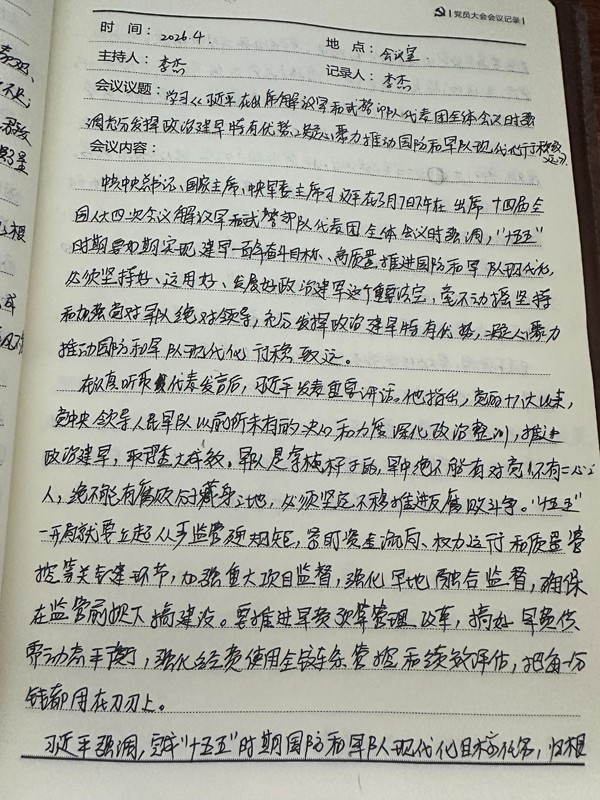 党员大会会议记录
时 间： 2026.4.
地 点： 会议室
主持人： 李杰
记录人： 李杰
会议议题： 学习《习近平在出席解放军和武警部队代表团全体会议时强
调充分发挥政治建军特有优势凝心聚力推动国防和军队现代化行稳致
远》
会议内容：
中共中央总书记、国家主席、中央军委主席习近平在3月7日下午在出席十四届全
国人大四次会议解放军和武警部队代表团全体会议时强调，"十五五"
时期要如期实现建军一百年奋斗目标、高质量推进国防和军队现代化，
必须坚持好、运用好、发展好政治建军这个重要法宝，毫不动摇坚持
和加强党对军队绝对领导，充分发挥政治建军特有优势，凝心聚力
推动国防和军队现代化行稳致远。
在认真听取代表发言后，习近平发表重要讲话。他指出，党的十八大以来，
党中央领导人民军队以前所未有的决心和力度深化政治整训，推进
政治建军，取得重大成效。军队是拿枪杆子的，军中绝不能有对党怀有二心之
人，绝不能有腐败分子藏身之地，必须坚定不移推进反腐败斗争。"十五五"
一开局就要立起从严监管硬规矩，紧盯资金流向、权力运行和质量管
控等关键环节，加强重大项目监督，强化军地融合监督，确保
在监管前提下搞建设。要推进军费预算管理改革，搞好军费供
需动态平衡，强化经费使用全链条管控和绩效评估，把每一分
钱都用在刀刃上。
习近平强调，完成"十五五"时期国防和军队现代化目标任务，归根